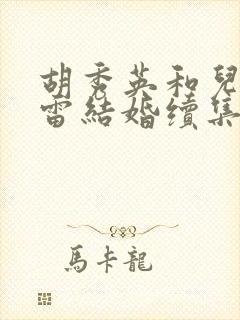 胡秀英和兒
雷結婚續集
馬卡龍